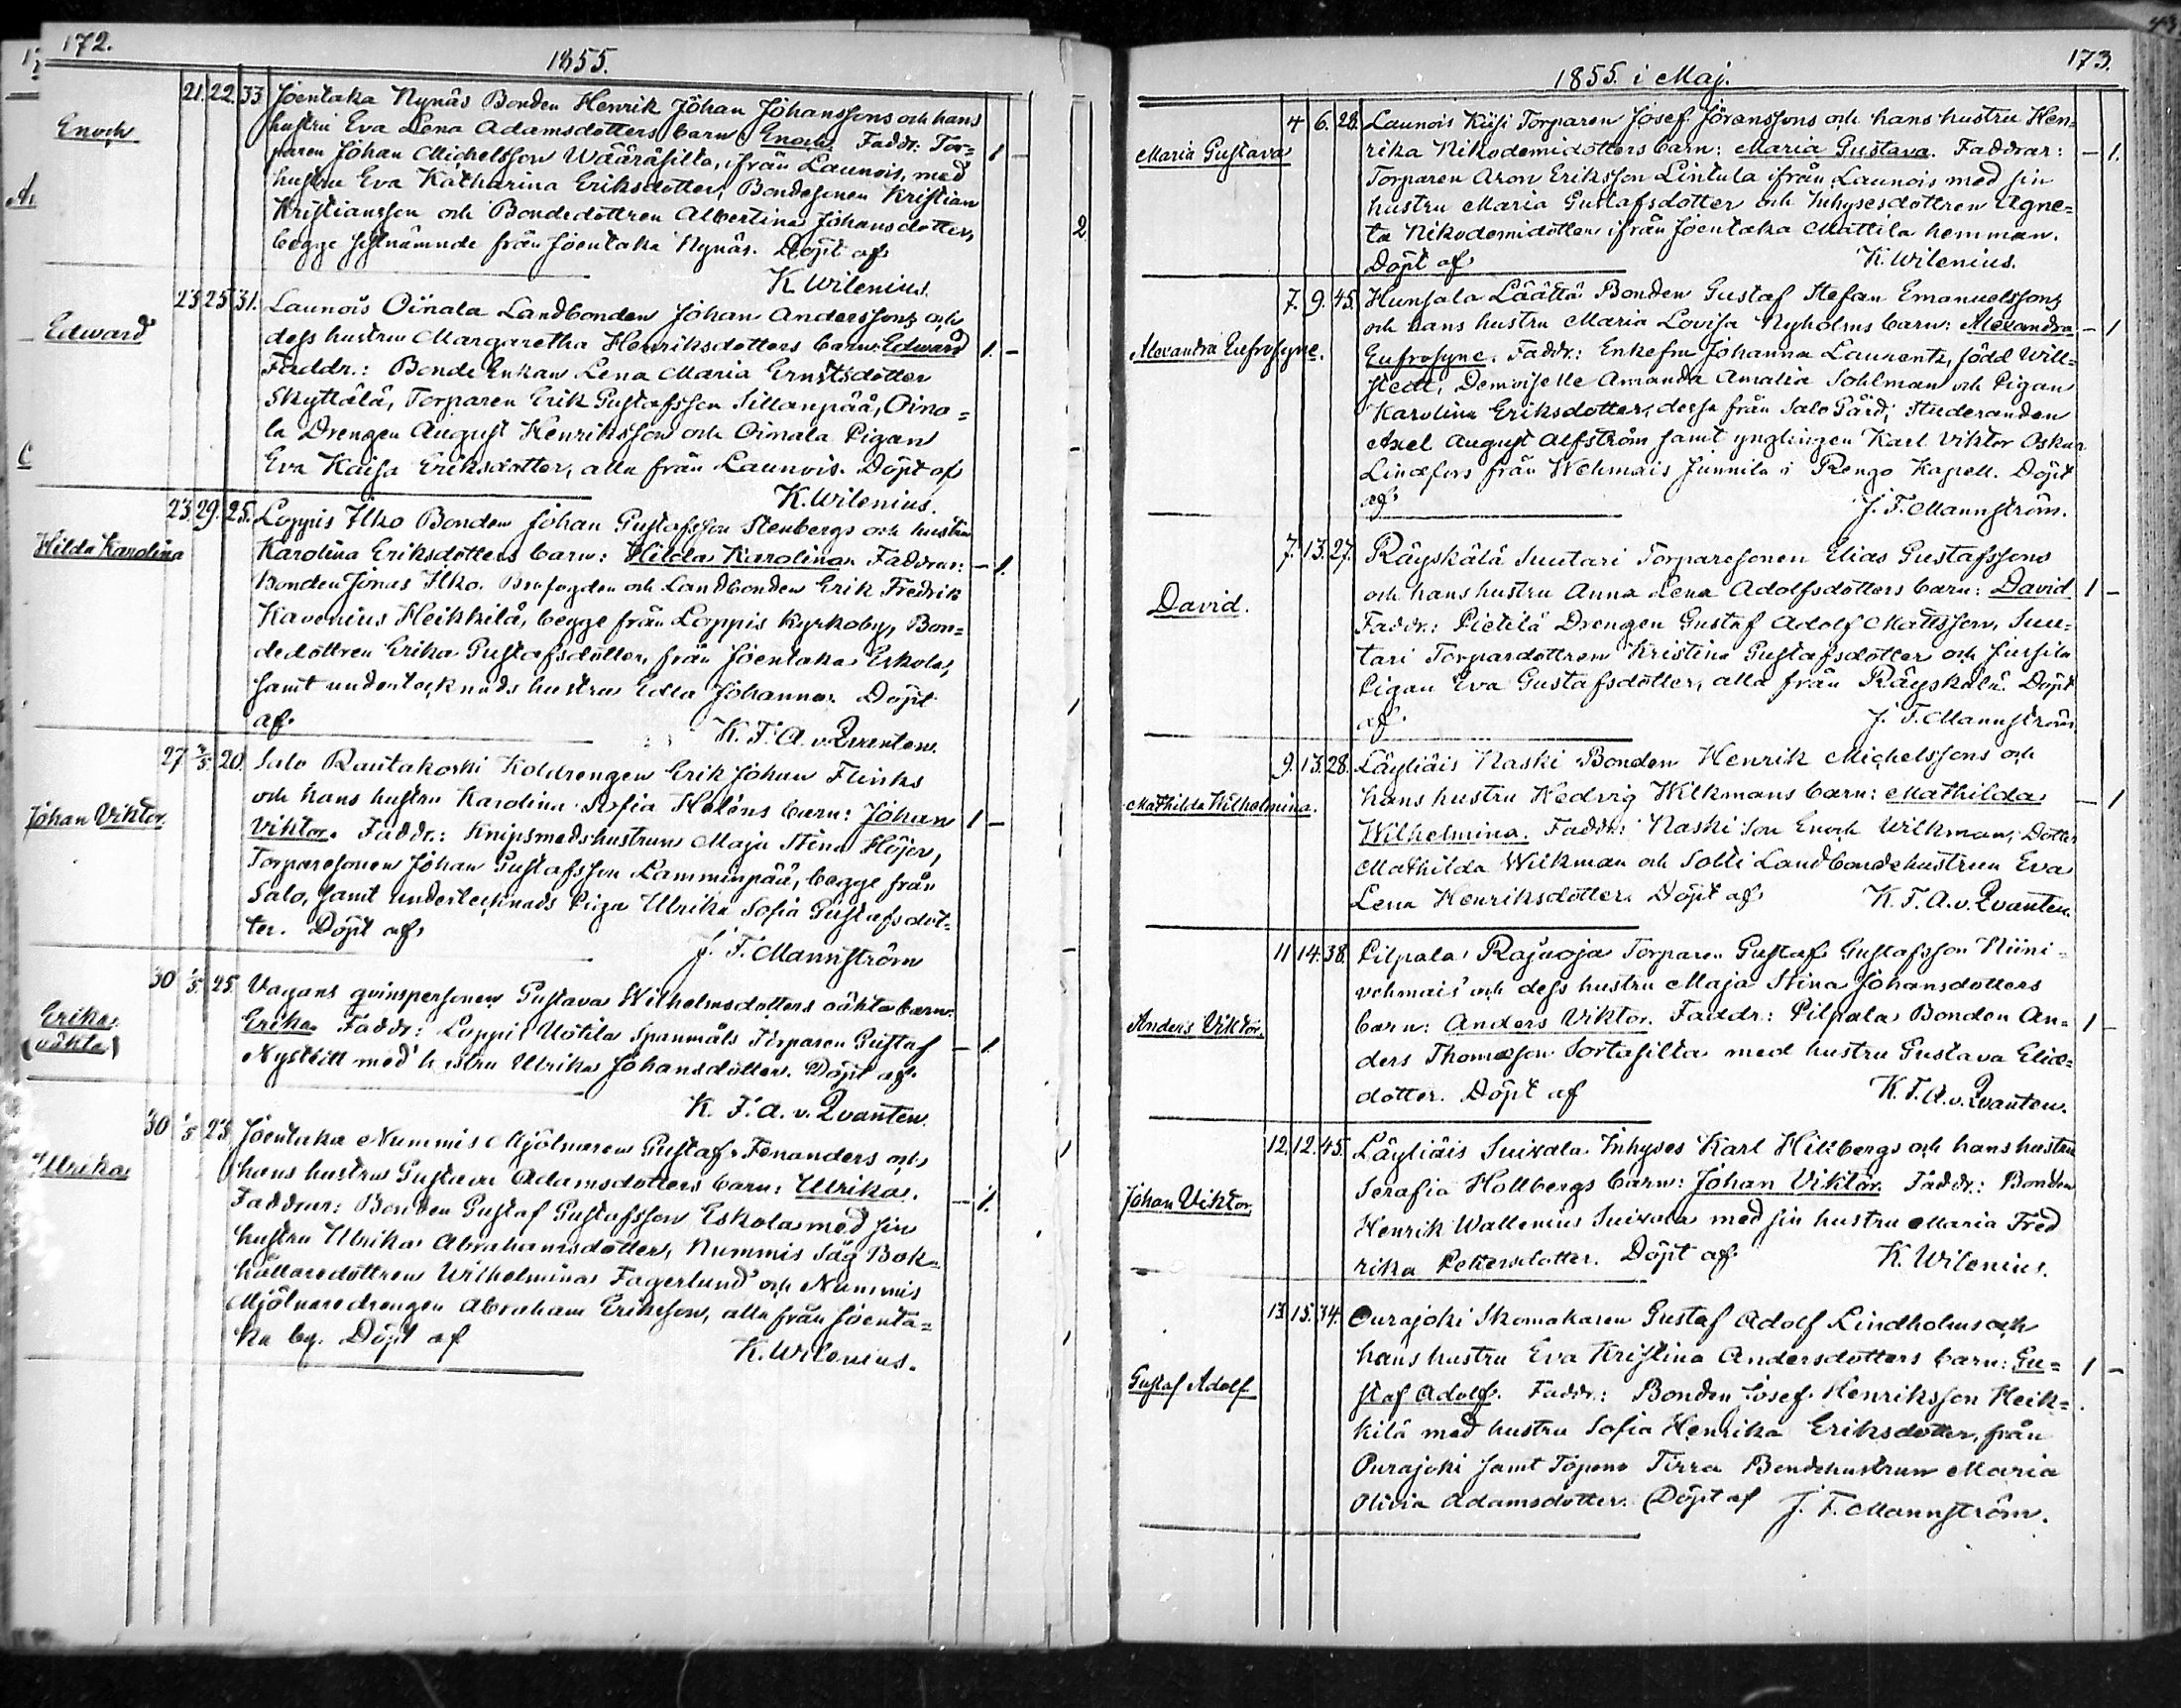 172.
1855.
Enoch
21. 22. 33. Joentaka Nynäs Bonden Henrik Johan Johanssons och hans
hustru Eva Lena Adamsdotters barn: Enoch. Faddr: Tor=
paren Johan Michelsson Wääräsilta, ifrån Launois, med
hustru Eva Katharina Eriksdotter, Bondesonen Kristian
Kristiansson och Bondedottren Albertina Johansdotter,
begge sistnämnde från Joentaka Nynäs. Döpt af
K. Wilenius.
Edward
23. 25. 31. Launois Oinala Landbonden Johan Anderssons och
dess hustru Margaretha Henriksdotters barn: Edward 1. –
Faddr.: Bonde Enkan Lena Maria Ernstsdotter
Skyttälä, Torparen Erik Gustafsson Sillanpää, Oina=
la Drengen August Henriksson och Oinala Pigan
Eva Kaisa Eriksdotter, alla från Launois. Döpt af
K. Wilenius.
Hilda Karolina
23. 29. 25. Loppis Ilko Bonden Johan Gustafsson Stenbergs och hustru
Karolina Eriksdotters barn: Hilda Karolina. Faddrar: – 1.
Bonden Jonas Ilko. Brofogden och Landbonden Erik Fredrik
Kavenius Heikkilä, begge från Loppis Kyrkoby, Bon=
dedottren Erika Gustafsdotter, från Joentaka Eskola,
samt undertecknads hustru Edla Johanna. Döpt
af
K. F. A. v. Qvanten.
Johan Viktor.
27 20. Salo Rautakoski Koldrengen Erik Johan Flinks
och hans hustru Karolina Sofia Heléns barn: Johan 1 –
Viktor. Faddr.: Knipsmedshustrun Maja Stina Höjer,
Torparesonen Johan Gustafsson Lamminpää, begge från
Salo, samt undertecknads Piga Ulrika Sofia Gustafsdot=
ter. Döpt af
J. F. Mannström
Erika
(oäkta)
30 1/5. 25. Vagans qvinspersonen Gustava Wilhelmsdotters oäkta barn:
Erika. Faddr: Loppis Uotila Spanmåls Torparen Gustaf – 1.
Nystitt med hustru Ulrika Johansdotter. Döpt af
K. F. A. v. Qvanten.
Ulrika
30 1/5 23. Joentaka Nummis Mjölnaren Gustaf Fenanders och
hans hustru Gustava Adamsdotters barn: Ulrika. – 1.
Faddrar: Bonden Gustaf Gustafsson Eskola med sin
hustru Ulrika Abrahamsdotter, Nummis Såg Bok=
hållaredottren Wilhelmina Fagerlund och Nummis
Mjölnaredrengen Abraham Eriksson, alla från Joenta=
ka by. Döpt af
K. Wilenius.
173.
1855. i Maj.
Maria Gustava
4 6. 28. Launois Kiisi Torparen Josef Göranssons och hans hustru Hen=
rika Nikodemidotters barn: Maria Gustava. Faddrar: – 1.
Torparen Aron Eriksson Lintula ifrån Launois med sin
hustru Maria Gustafsdotter och Inhysesdottren Agne=
ta Nikodemidotter ifrån Joentaka Mattila hemman.
Döpt af K. Wilenius.
Alexandra Eufrosyne.
7. 9. 45. Hunsala Läättä Bonden Gustaf Stefan Emanuelssons
och hans hustru Maria Lovisa Nyholms barn: Alexandra – 1
Eufrosyne. Faddr.: Enkefru Johanna Laurentz, född Will=
stedt, Demoiselle Amanda Amalia Sohlman och Pigan
Karolina Eriksdotter, dessa från Salo Gård, Studeranden
Axel August Alfström samt ynglingen Karl Viktor Oskar
Lindfors från Wehmais Junnila i Rengo Kapell. Döpt
af J. F. Mannström.
David.
7. 13. 27. Räyskälä Suutari Torparesonen Elias Gustafssons
och hans hustru Anna Lena Adolfsdotters barn: David 1 –
Faddr.: Pietilä Drengen Gustaf Adolf Mattsson, Suu=
tari Torpardottren Kristina Gustafsdotter och Jussila
Pigan Eva Gustafsdotter, alla från Räyskälä. Döpt
af J. F. Mannström
Mathilda Wilhelmina.
9. 13. 28. Läyliäis Naski Bonden Henrik Michelssons och
hans hustru Hedvig Wilkmans barn: Mathilda – 1
Wilhelmina. Faddr: Naski Son Enoch Wilkman, Dotter
Mathilda Wilkman och Solti Landbondehustrun Eva
Lena Henriksdotter. Döpt af K. F. A. v. Qvanten.
Anders Viktor.
11 14. 38. Pilpala Rajuoja Torparen Gustaf Gustafsson Niini=
vehmais och dess hustru Maja Stina Johansdotters
barn: Anders Viktor. Faddr: Pilpala Bonden An= 1 –
ders Thomasson Sortasilta med hustru Gustava Elias=
dotter. Döpt af K. F. A. v. Qvanten.
Johan Viktor
12. 12. 45. Läyliäis Suikala Inhyses Karl Hillbergs och hans hustru
Serafia Hollbergs barn: Johan Viktor. Faddr.: Bonden
Henrik Wallenius Suikola med sin hustru Maria Fred
rika Pettersdotter. Döpt af K. Wilenius.
Gustaf Adolf
13. 15. 34. Ourajoki Skomakaren Gustaf Adolf Lindholms och
hans hustru Eva Kristina Andersdotters barn: Gu= 1 –
staf Adolf. Faddr.: Bonden Josef Henriksson Heik=
kilä med hustru Sofia Henrika Eriksdotter, från
Ourajoki samt Topeno Tirra Bondehustrun Maria
Olivia Adamsdotter. Döpt af J. F. Mannström.